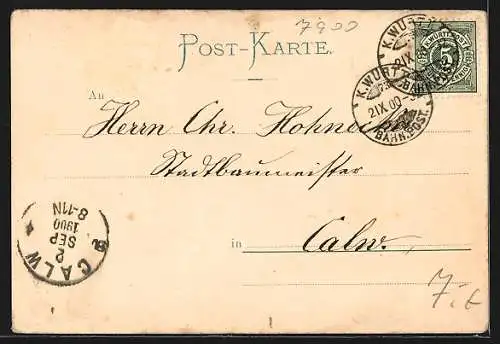 7900
POST-KARTE.
K. WÜRTT.
2 IX 00
BAHNPOST.
K. WÜRTT. POST
5
An
Herrn Chr. Hohnecker
Stadtbaumeister
in Calw.
CALW
2
SEP
1900
8-11N
7.6